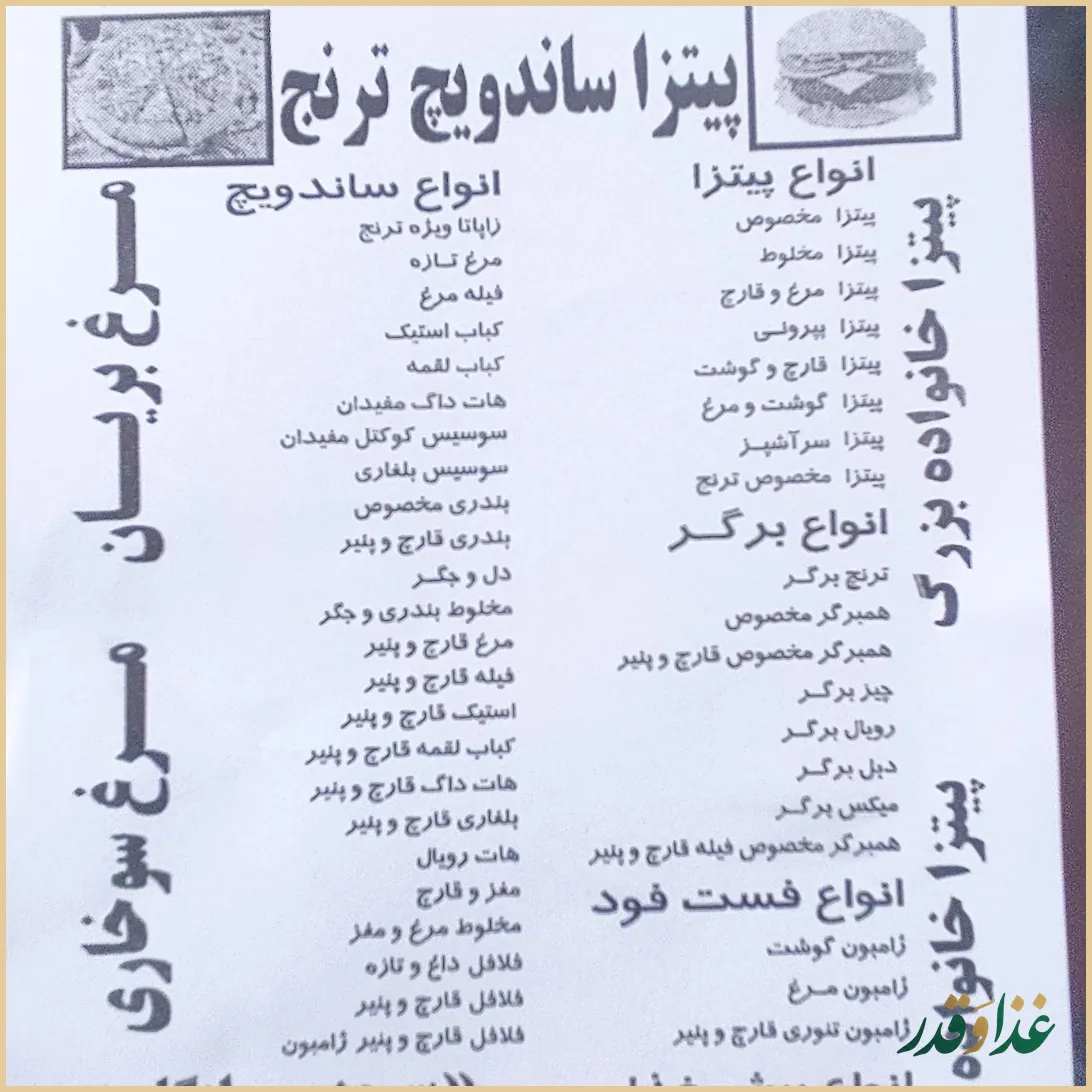 پیتزا ساندویچ ترنج
پیتزا خانواده بزرگ
پیتزا خانواده
انواع پیتزا
پیتزا مخصوص
پیتزا مخلوط
پیتزا مرغ و قارچ
پیتزا پپرونی
پیتزا قارچ و گوشت
پیتزا گوشت و مرغ
پیتزا سرآشپز
پیتزا مخصوص ترنج
انواع برگر
ترنج برگر
همبرگر مخصوص
همبرگر مخصوص قارچ و پنیر
چیز برگر
رویال برگر
دبل برگر
میکس برگر
همبرگر مخصوص فیله قارچ و پنیر
انواع فست فود
ژامبون گوشت
ژامبون مرغ
ژامبون تنوری قارچ و پنیر
انواع ساندویچ
زاپاتا ویژه ترنج
مرغ تازه
فیله مرغ
کباب استیک
کباب لقمه
هات داگ مفیدان
سوسیس کوکتل مفیدان
سوسیس بلغاری
بندری مخصوص
بندری قارچ و پنیر
دل و جگر
مخلوط بندری و جگر
مرغ قارچ و پنیر
فیله قارچ و پنیر
استیک قارچ و پنیر
کباب لقمه قارچ و پنیر
هات داگ قارچ و پنیر
بلغاری قارچ و پنیر
هات رویال
مغز و قارچ
مخلوط مرغ و مغز
فلافل داغ و تازه
فلافل قارچ و پنیر
فلافل قارچ و پنیر ژامبون
مرغ بریان
مرغ سوخاری
غذا و قدر